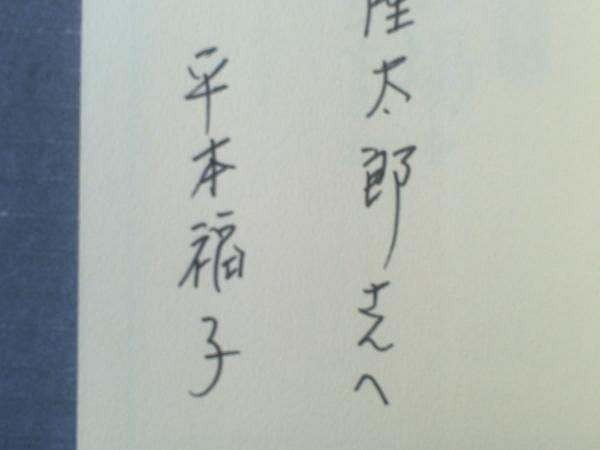 隆太郎さんへ
平本福子